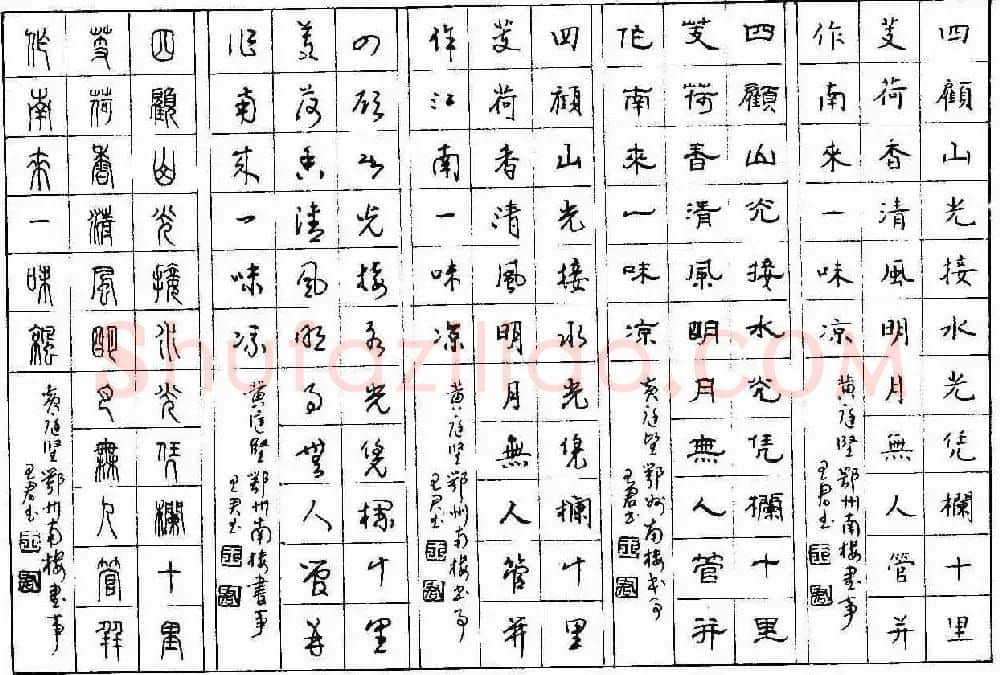 四顧山光接水光凭欄十里
芰荷香清風明月無人管并
作南來一味凉
黄庭堅鄂州南樓書事
四顧山光接水光凭欄十里
芰荷香清風明月無人管并
作南來一味凉
黄庭堅鄂州南樓書事
四顧山光接水光凭欄十里
芰荷香清風明月無人管并
作江南一味凉
黄庭堅鄂州南樓書事
四顧山光接水光凭欄十里
芰荷香清風明月無人管并
作南來一味凉
黄庭堅鄂州南樓書事
四顧山光接水光凭欄十里
芰荷香清風明月無人管并
作南來一味凉
黄庭堅鄂州南樓書事
Shufaziliao.COM